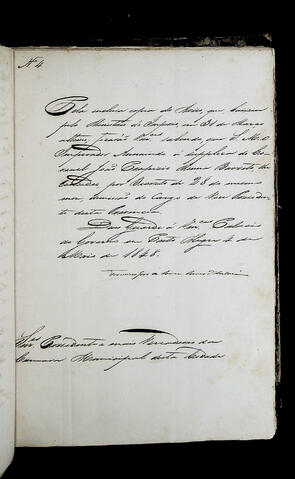 Nº 4
Pela inclusa copia do Aviso, que baixou
pelo Ministerio do Imperio, em 31 de Março
ultimo, ficarão V.mces sabendo que S. M. O
Imperador Annuindo á supplica do
General João Chrisostomo
por Decreto de 28 do mesmo
mez, demissão do Cargo de Vice Presiden
te desta Provincia.
Deos Guarde a V.mces Palacio
do Governo em Porto Alegre 4 de
Maio de 1848.
Snr.es Presidente e mais Vereadores da
Camara Municipal desta Cidade